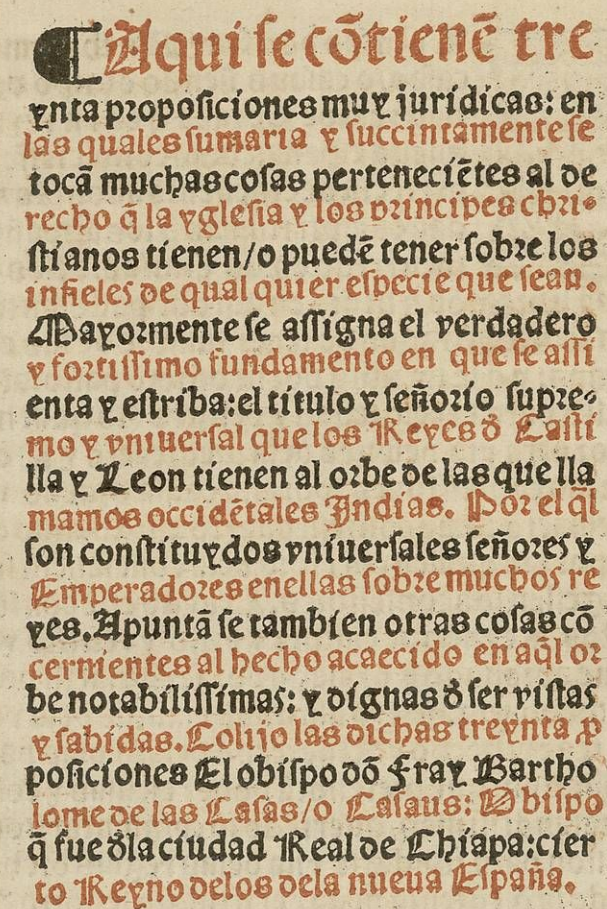 ¶ Aqui se cõtienẽ tre
ynta proposiciones muy juridicas: en
las quales sumaria y succintamente se
tocã muchas cosas perteneciẽtes al de
recho q̃ la yglesia y los principes chri-
stianos tienen/o puedẽ tener sobre los
infieles de qual quier especie que sean.
Mayormente se assigna el verdadero
y fortissimo fundamento en que se assi
enta y estriba: el titulo y señorio supre-
mo y vniuersal que los Reyes d̃ Casti
lla y Leon tienen al orbe de las que lla
mamos occidẽtales Indias. Por el q̃l
son constituydos vniuersales señores y
Emperadores enellas sobre muchos re
yes. Apuntã se tambien otras cosas cõ
cernientes al hecho acaecido en aq̃l or
be notabilissimas: y dignas d̃ ser vistas
y sabidas. Colijo las dichas treynta ꝓ
posiciones El obispo dõ fray Bartho
lome de las Casas/o Casaus: Obispo
q̃ fue d̃la ciudad Real de Chiapa: cier
to Reyno delos dela nueua España.